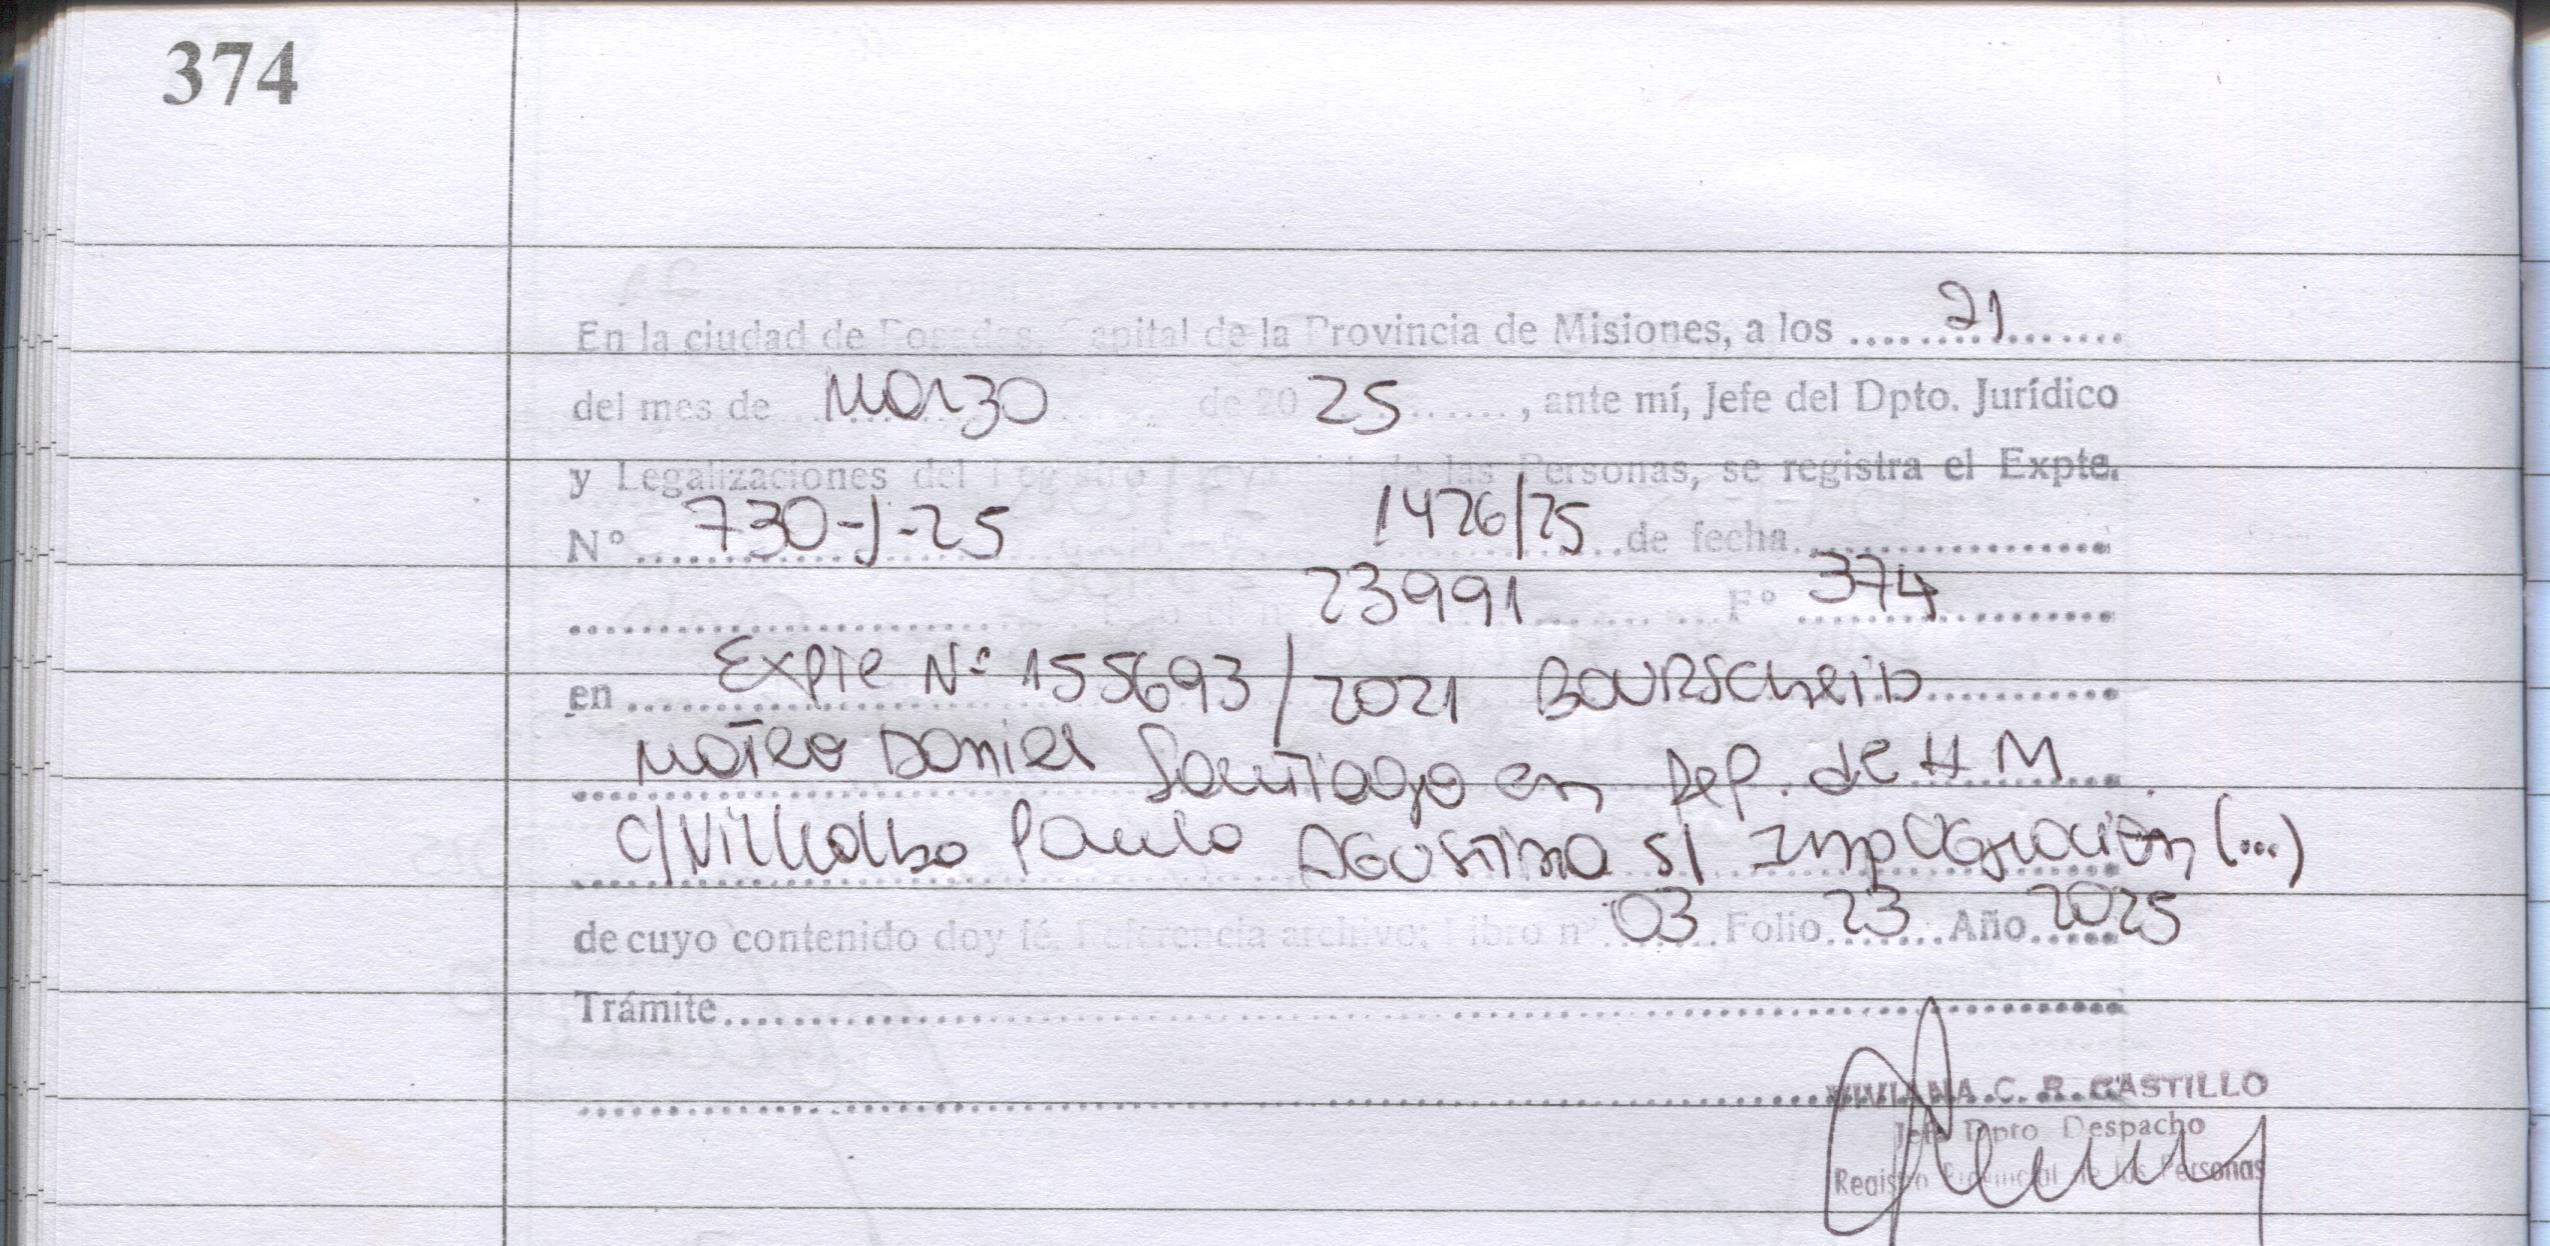 374
En la ciudad de Posadas, Capital de la Provincia de Misiones, a los ........21........
del mes de ... Marzo de 20 25 ........, ante mí, Jefe del Dpto. Jurídico
y Legalizaciones del Registro de las Personas, se registra el Expte.
N° 730-J-25 1426/25 de fecha....................
23991 F° 374
en Expte N° 155693/2021 Bourscheid
Mateo Daniel Santiago en Rep. de H M
c/ Villalba Paula Agustina s/ Impugnación (...)
de cuyo contenido doy fé. Referencia archivo: Libro n° 03 Folio 23 Año 2025
Trámite....................
VIVIANA C. R. CASTILLO
Jefa Dpto Despacho
Registro Provincial de las Personas